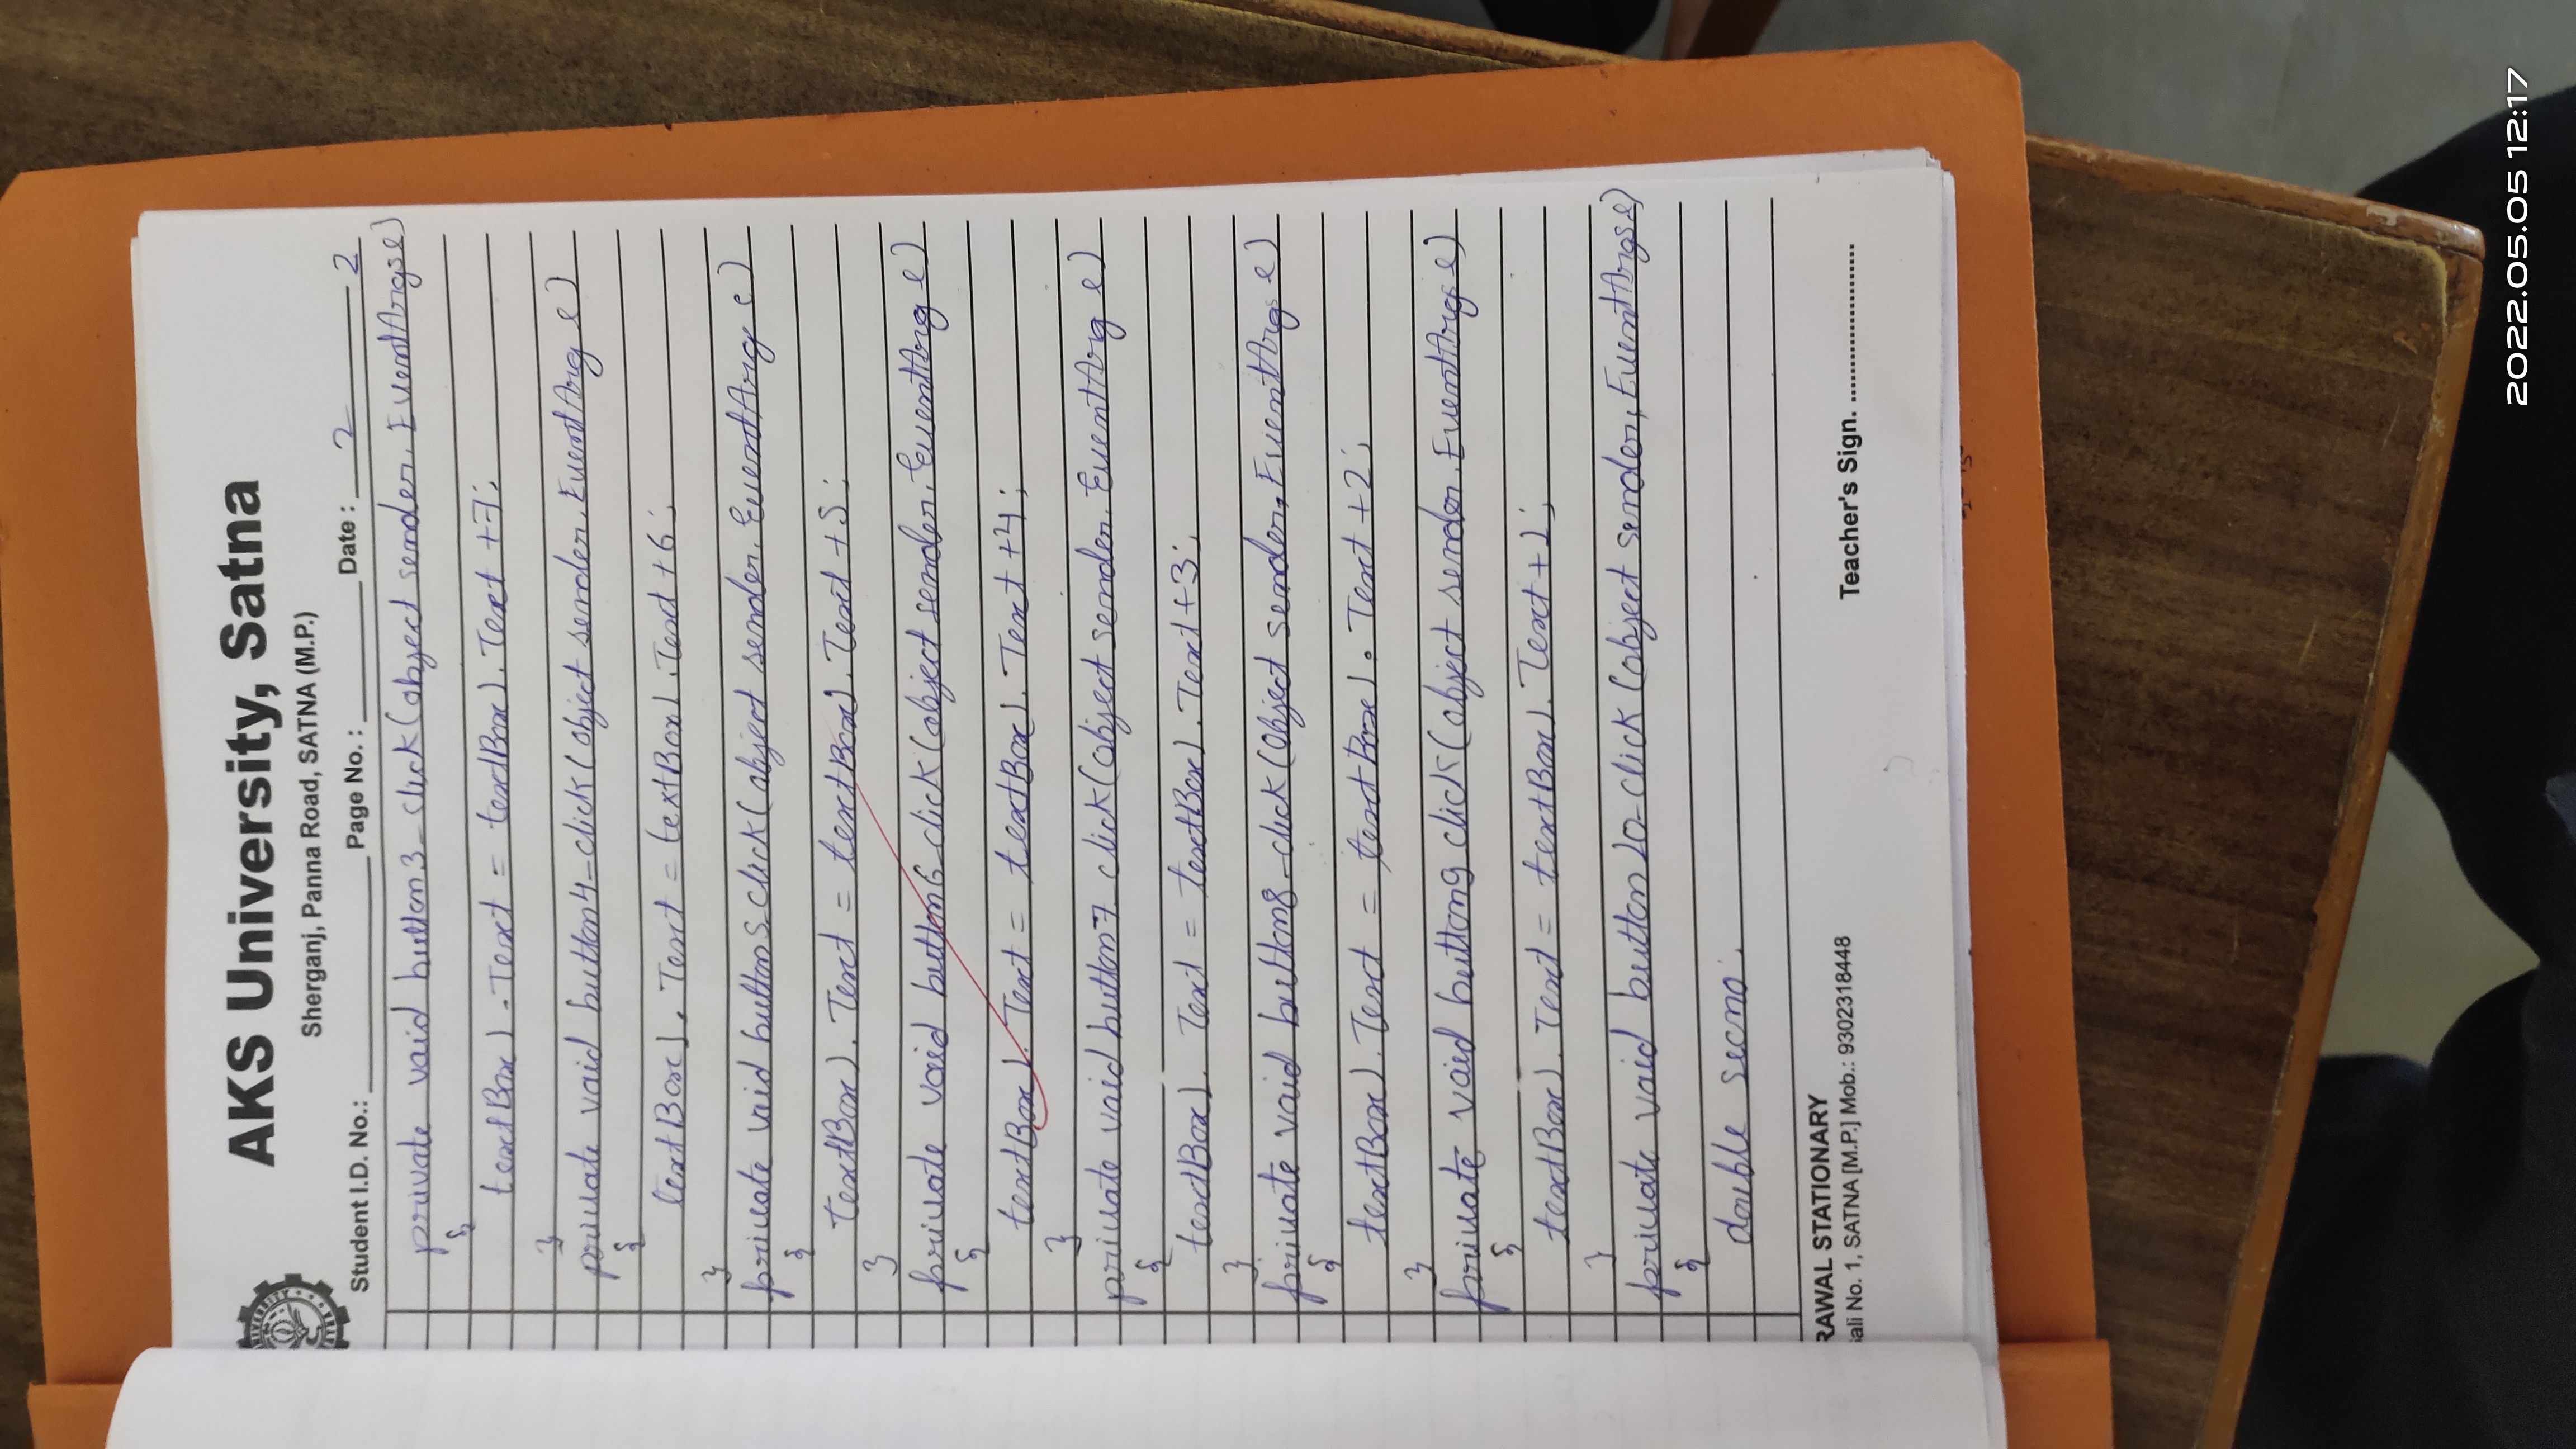 AKS University, Satna
Sherganj, Panna Road, SATNA (M.P.)
Student I.D. No.: Page No. : Date : 2 2
private vaid button3_click(object sender, EventArgs e)
{
textBox1.Text = textBox1.Text +7;
}
private vaid button4_click(object sender, EventArg e)
{
textBox1.Text = textBox1.Text +6;
}
private vaid button5_click(object sender, EventArg e)
{
TextBox1.Text = textBox1.Text +5;
}
private vaid button6_click(object sender, EventArg e)
{
textBox1.Text = textBox1.Text +4;
}
private vaid button7_click(object sender, EventArg e)
{
textBox1.Text = textBox1.Text +3;
}
private vaid button8_click(object sender, EventArgs e)
{
textBox1.Text = textBox1.Text +2;
}
private vaid button9 click(object sender, EventArgs e)
{
textBox1.Text = textBox1.Text +1;
}
private vaid button10_click(object sender, EventArgs e)
{
double secno;
RAWAL STATIONARY
ali No. 1, SATNA [M.P.] Mob.: 9302318448
Teacher's Sign. ........................
2022.05.05 12:17